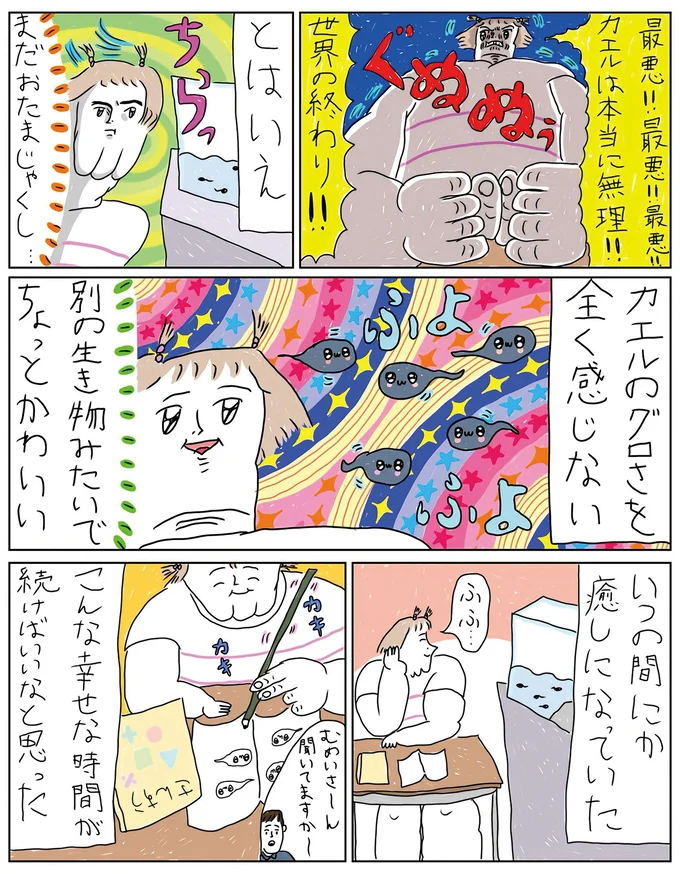 最悪!!最悪!!最悪!!
カエルは本当に無理!!
ぐぬぬぅ
世界の終わり!!
とはいえ
ちらっ
まだおたまじゃくし…
カエルのグロさを
全く感じない
ふよ
ふよ
別の生き物みたいで
ちょっとかわいい
いつの間にか
癒しになっていた
ふふ…
カキ
カキ
さんすう
むめいさーん
聞いてますか〜
こんな幸せな時間が
続けばいいなと思った